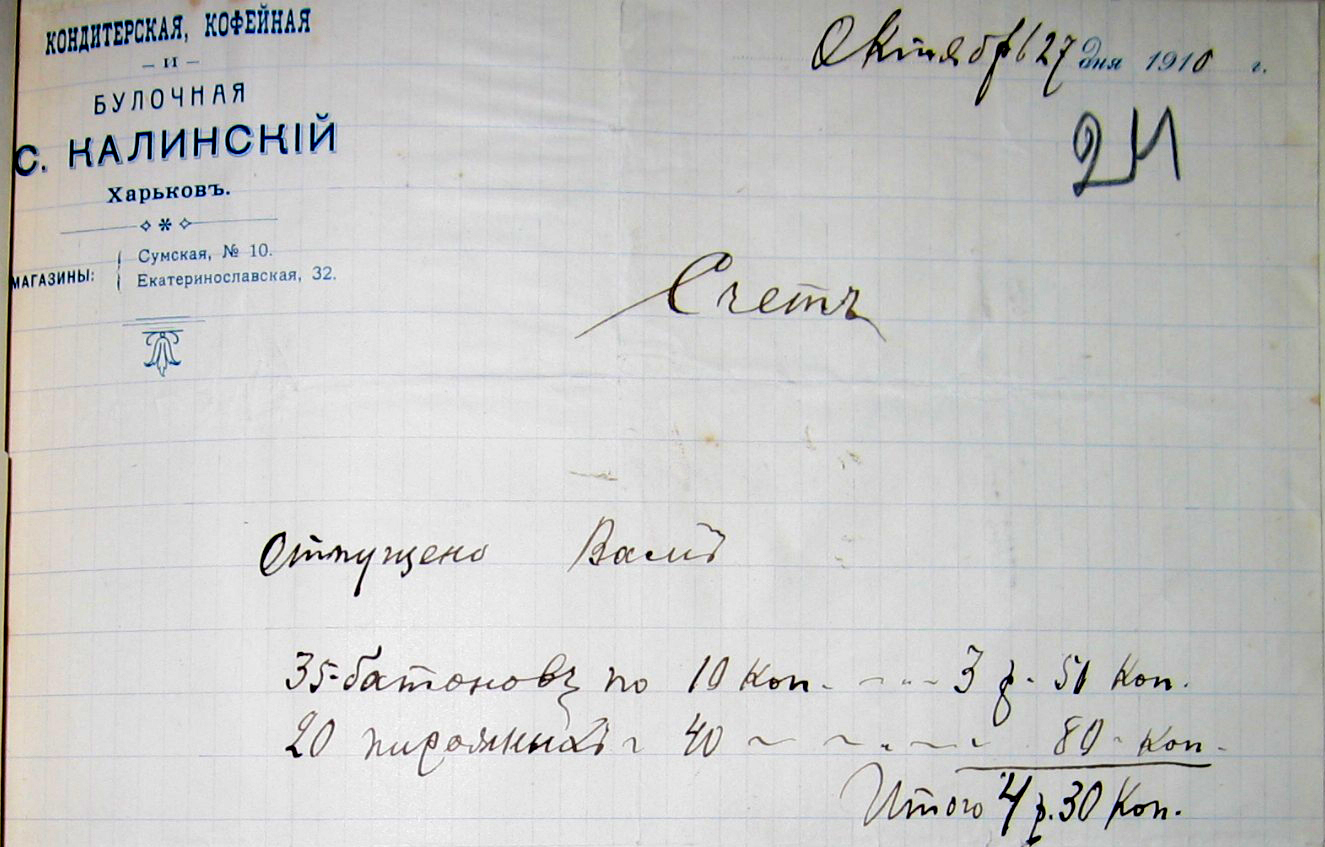 КОНДИТЕРСКАЯ, КОФЕЙНАЯ
— И —
БУЛОЧНАЯ
С. КАЛИНСКІЙ
Харьковъ.
МАГАЗИНЫ: Сумская, № 10.
Екатеринославская, 32.
Октября 27 дня 1910 г.
Счетъ
Отпущено Вамъ
35-батоновъ по 10 Коп. - - - 3 р. 50 Коп.
20 пирожныхъ " 40 ~ ~ - - - 80 - Коп -
Итого 4 р. 30 Коп.